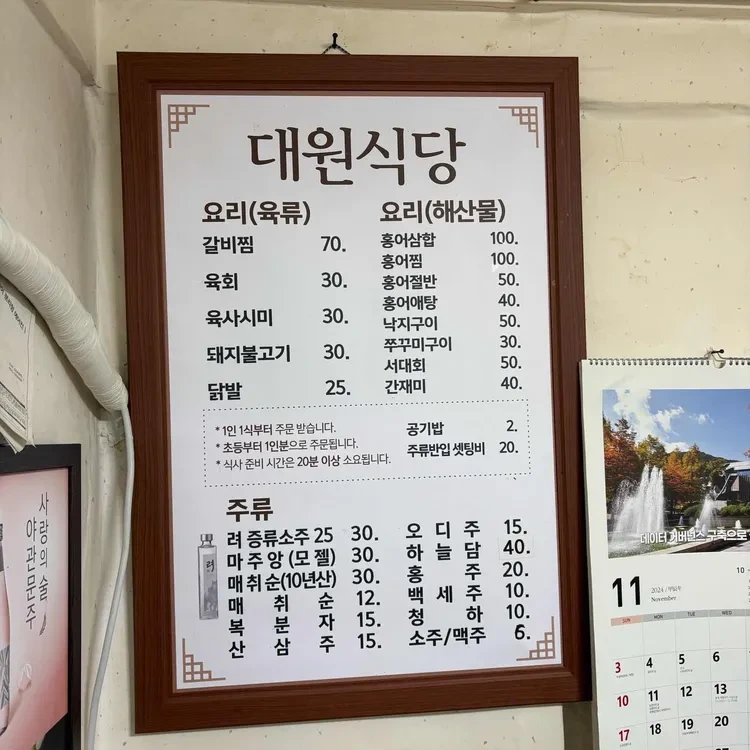 대원식당
요리(육류)
갈비찜 70.
육회 30.
육사시미 30.
돼지불고기 30.
닭발 25.
요리(해산물)
홍어삼합 100.
홍어찜 100.
홍어절반 50.
홍어애탕 40.
낙지구이 50.
쭈꾸미구이 30.
서대회 50.
간재미 40.
* 1인 1식부터 주문 받습니다.
* 초등부터 1인분으로 주문됩니다.
* 식사 준비 시간은 20분 이상 소요됩니다.
공기밥 2.
주류반입 셋팅비 20.
주류
려 증류소주 25 30.
마주앙 (모젤) 30.
매취순(10년산) 30.
매취순 12.
복분자 15.
산삼주 15.
오디주 15.
하늘담 40.
홍주 20.
백세주 10.
청하 10.
소주/맥주 6.
려
사랑의 술
야관문주
데이터 거버넌스 구축으로
11
2024 / 甲辰年
November
10
SUN MON TUE WED
3 4 5 6
10 11 12 13
17 18 19 20